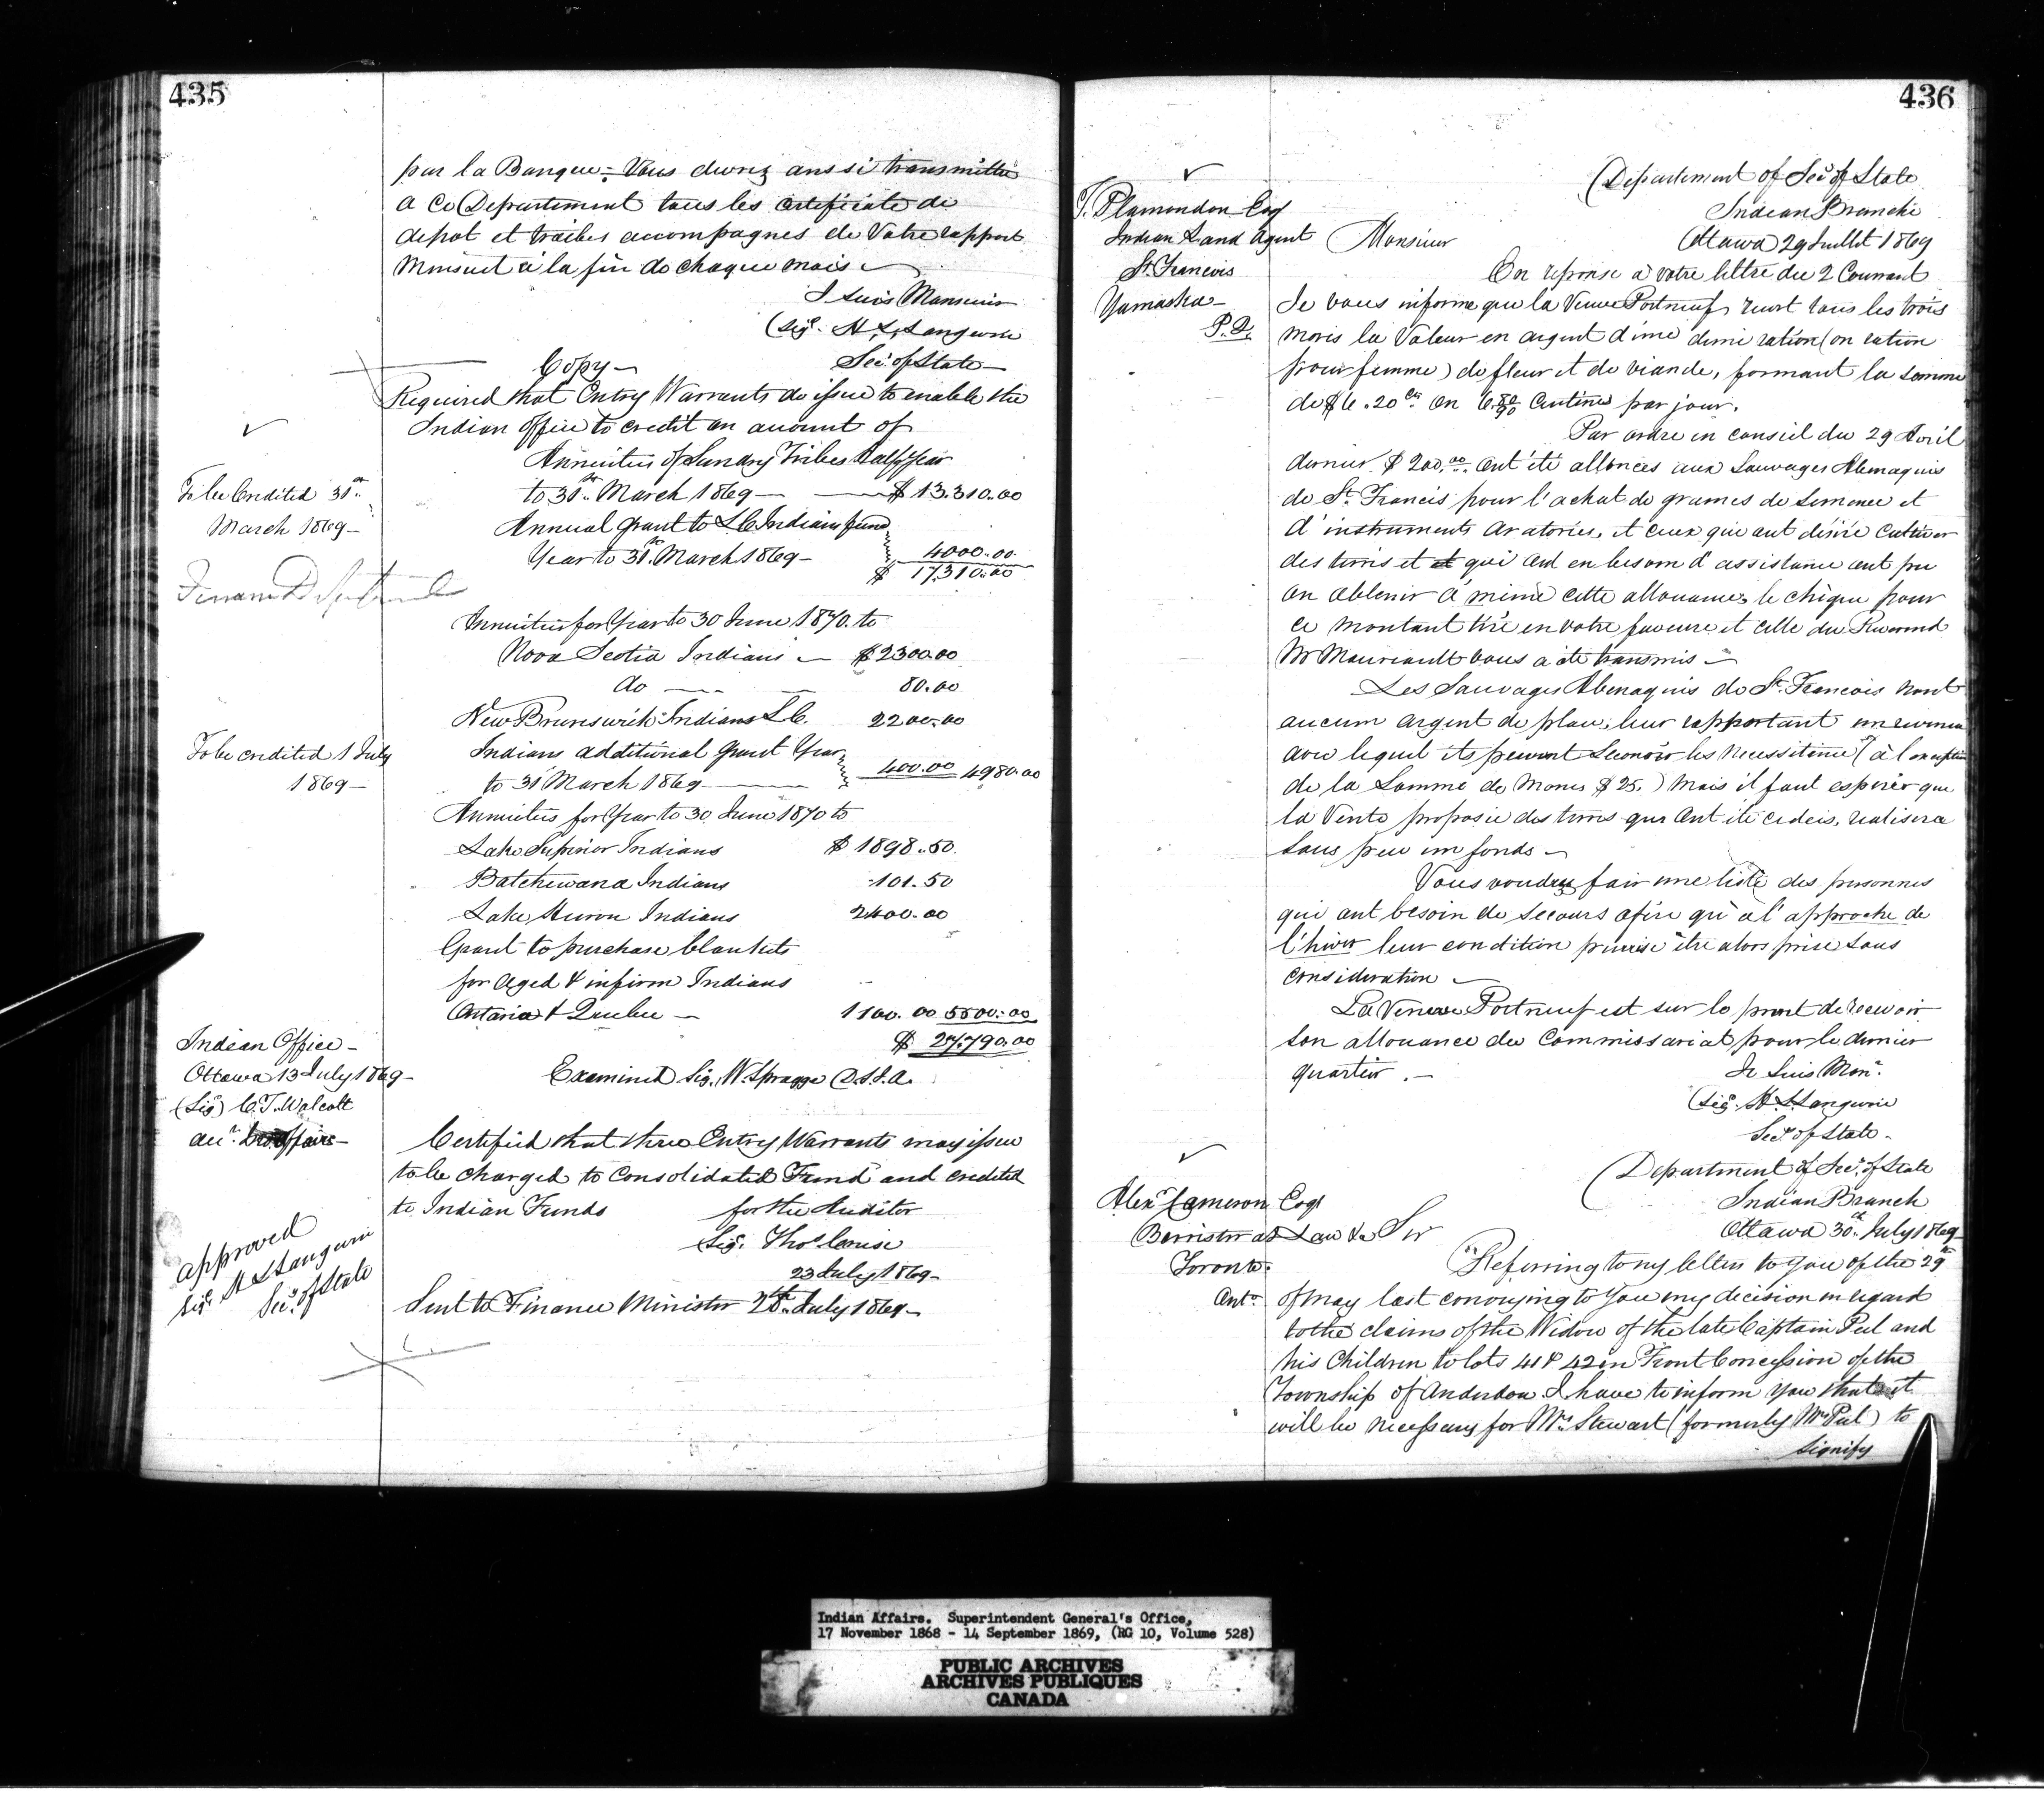 435
par la Banque. Vous devrez aussi transmettre
a ce Departement tous les certificats de
depot et traites accompagnés de Votre rapport
Mensuel à la fin de chaque mois
J suis Monsieur
(Sigd. H. L. Langevin
Secy of State
Copy
Required that Entry Warrants do issue to enable the
Indian Office to credit on account of
Annuities of Sundry Tribes half Year
to 31st March 1869 $ 13.310.00
Annual Grant to L C Indian fund
Year to 31st March 1869 4000.00
$ 17310.00
To be Credited 31st
March 1869
Annuities for Year to 30 June 1870 to
Nova Scotia Indians $2300.00
do 80.00
New Brunswick Indians L C. 2200.00
Indians additional Grant Year
to 31 March 1869 400.00 4980.00
To be credited 1 July
1869
Annuities for Year to 30 June 1870 to
Lake Superior Indians $ 1898.50
Batchewana Indians 101.50
Lake Huron Indians 2400.00
Grant to purchase blankets
for aged & infirm Indians
Ontario & Quebec 1100.00 5500.00
$ 27.790.00
Examined Sig. W. Spragge D.S.I.A.
Indian Office
Ottawa 13 July 1869
(Sigd) C. T. Walcott
Certified that three Entry Warrants may issue
to be charged to Consolidated Fund and credited
to Indian Funds for the Auditor
Sigd. Thos Cruse
23 July 1869
Sent to Finance Minister 28th July 1869
approved
Sigd H L Langevin
Secy of State
436
Departement of Secy of State
Indian Branche
Ottawa 29 Juillet 1869
T. Plamondon Esq
Indian Land Agent
St. Francois
Yamaska
P.Q.
Monsieur
En reponse à votre lettre du 2 Courant
Je vous informe que la Veuve Portneuf recoit tous les trois
mois la Valeur en argent d'une demi ration (ou ration
pour femme) de fleur et de viande, formant la somme
de $6.20 cts ou 6.80/90 Centins par jour.
Par ordre en conseil du 29 Avril
dernier $200.00 ont été allouées aux Sauvages Abenaquis
de St. Francis pour l'achat de graines de semence et
d'instruments aratoires, et ceux qui ont désiré cultiver
des terres et et qui ont eu besoin d'assistance ont pu
en obtenir à même cette allouance, le chèque pour
ce montant tiré en votre faveur et celle du Reverend
Mr Maurault vous a été transmis
Les Sauvages Abenaquis de St. Francois n'ont
aucun argent de placé leur rapportant un revenu
avec lequel ils peuvent secourir les necessiteux (à l'exception
de la Somme de Moins $25.) Mais il faut espérer que
la Vente proposée des terres qui ont été cedées, realisera
sous peu un fonds
Vous voudrez faire une liste des personnes
qui ont besoin de secours afin qu'à l'approche de
l'hiver leur condition puisse être alors prise sous
consideration
La Veuve Portneuf est sur le point de recevoir
son allouance du Commissariat pour le dernier
quartier.
Je suis Monr.
(Sigd. H. L. Langevin
Secy of State
Department of Secy of State
Indian Branch
Ottawa 30th July 1869
Alexr Cameron Esqr
Barrister at Law &c
Toronto
Ontr.
Sir
Referring to my letter to You of the 29th
of May last conveying to You my decision in regard
to the claims of the Widow of the late Captain Peel and
his Children to lots 41 & 42 in Front Concession of the
Township of Anderdon I have to inform You that it
will be necessary for Mrs. Stewart (formerly Mrs Peel) to
signify
Indian Affairs. Superintendent General's Office,
17 November 1868 - 14 September 1869, (RG 10, Volume 528)
PUBLIC ARCHIVES
ARCHIVES PUBLIQUES
CANADA